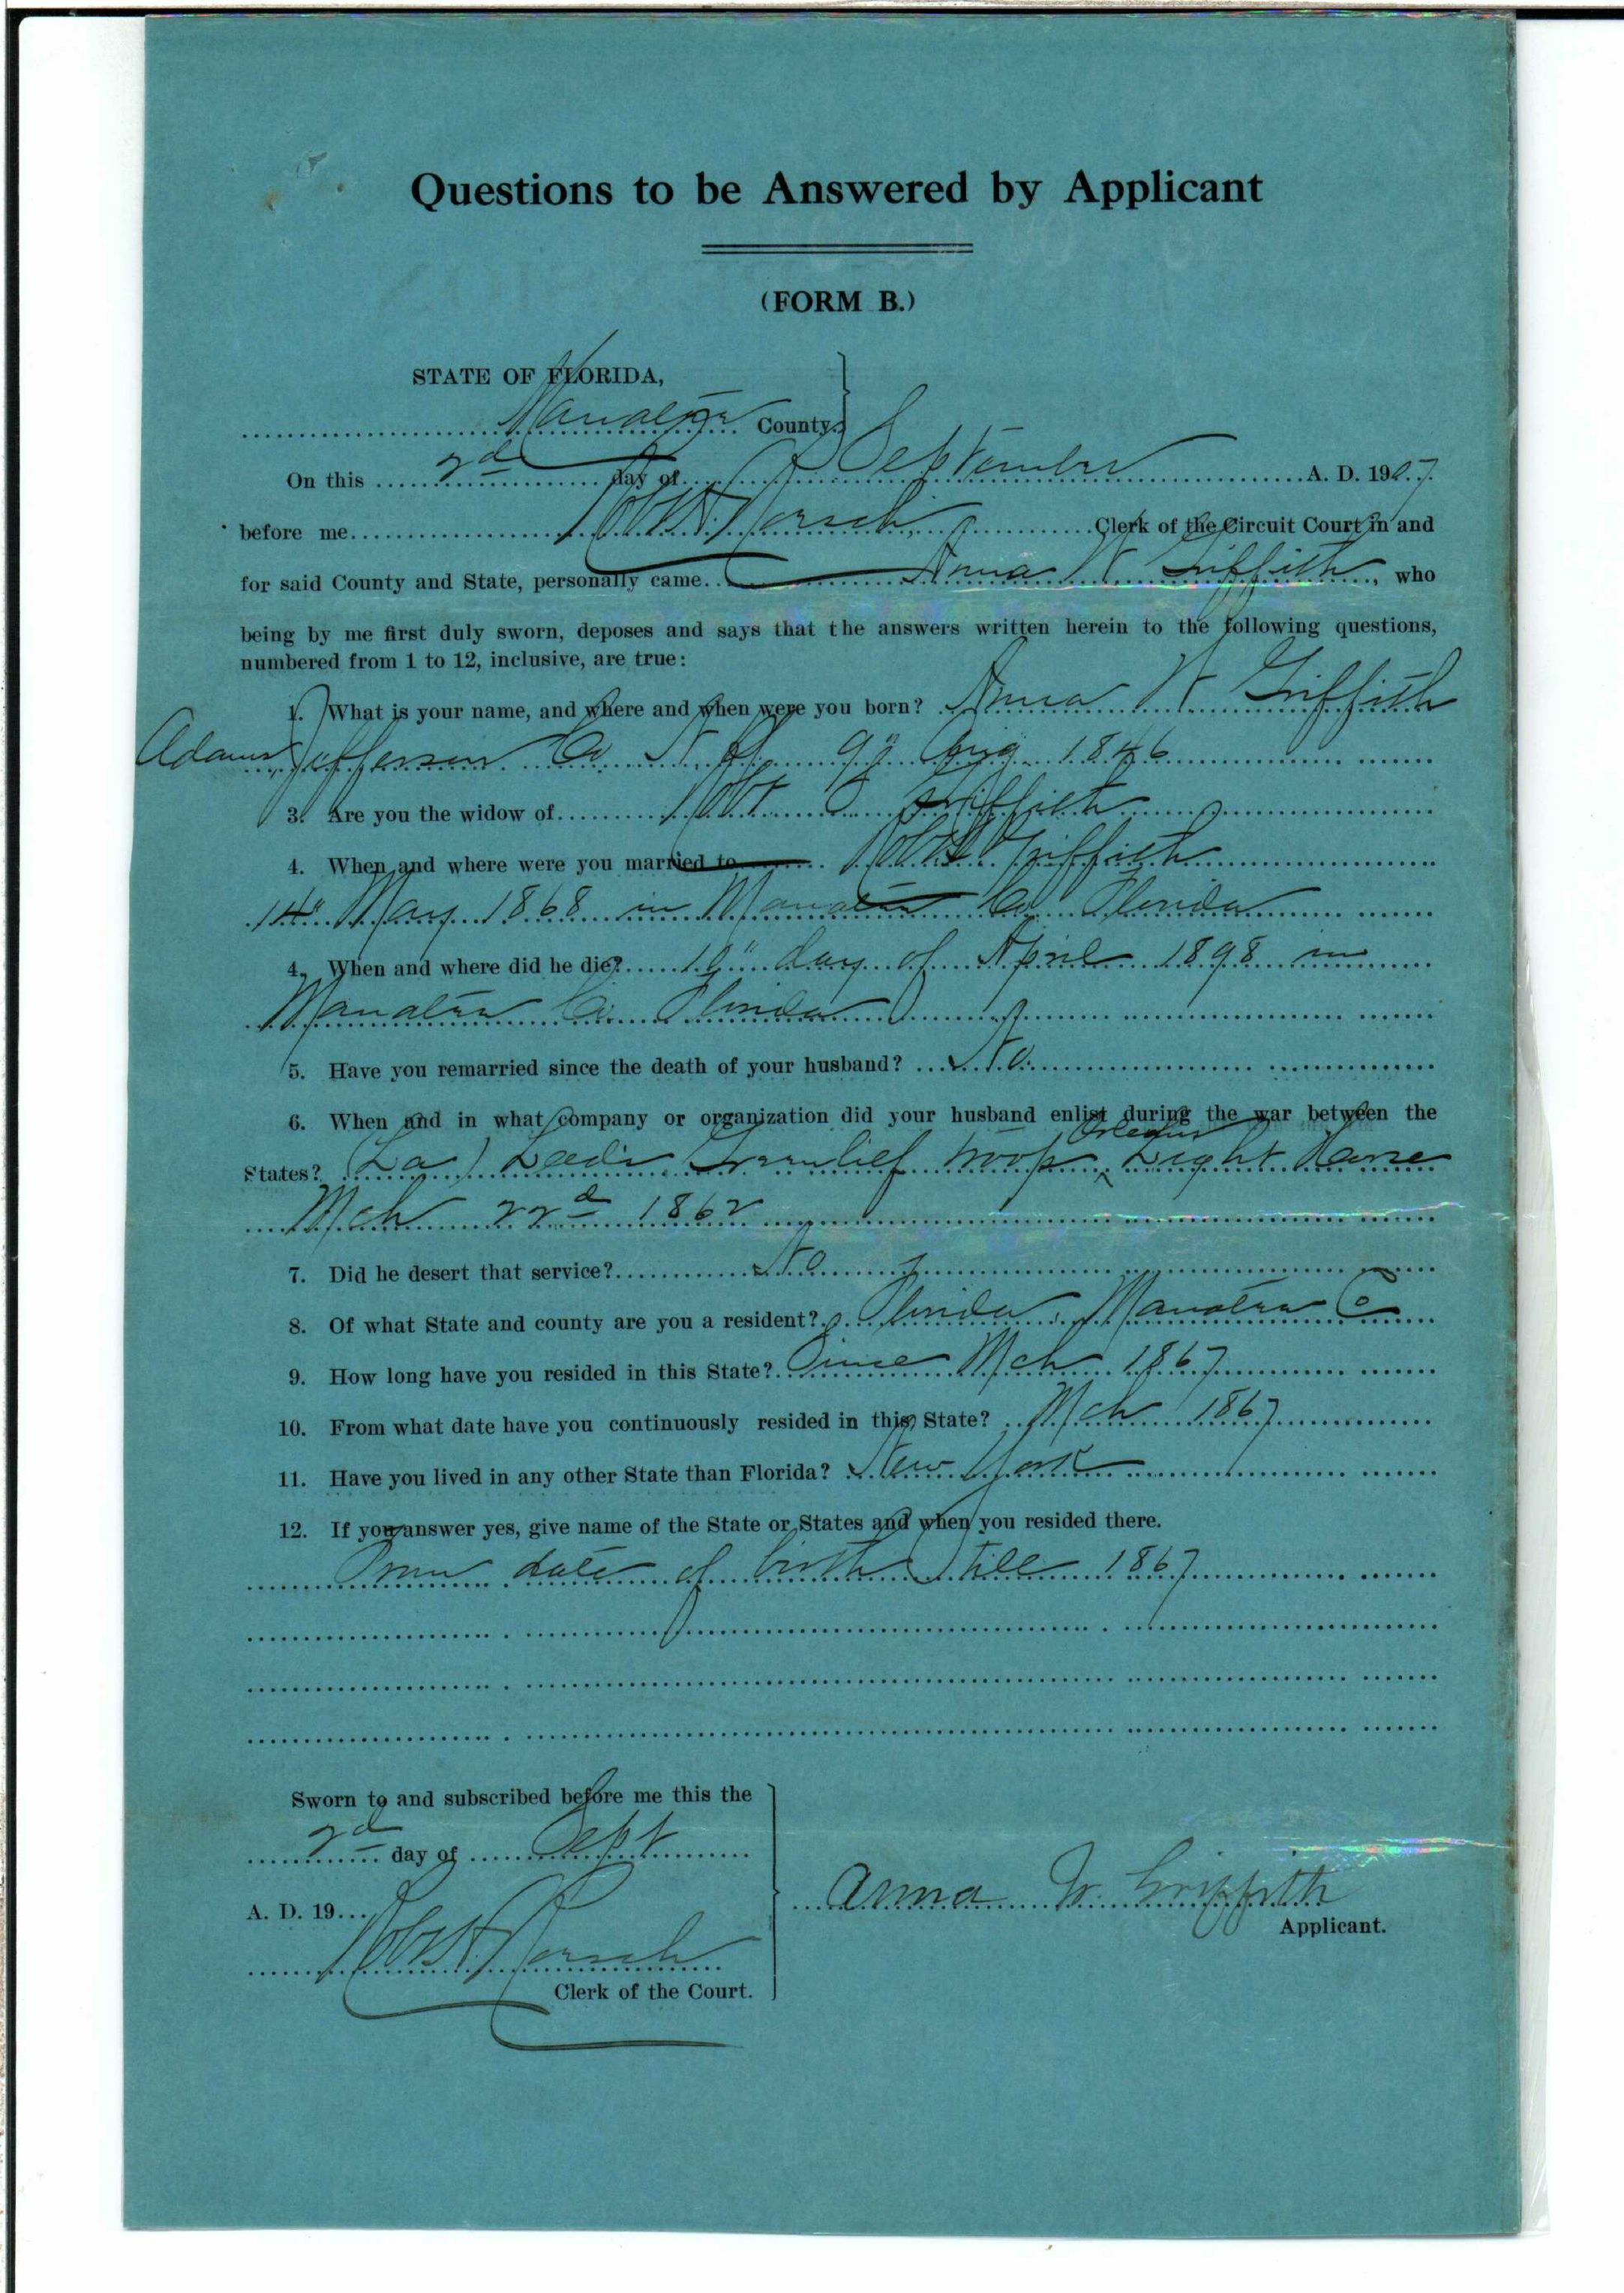 Questions to be Answered by Applicant
(FORM B.)
STATE OF FLORIDA,
Manatee County.
On this 2d day of September A. D. 1907.
before me Robt H. Roesch, Clerk of the Circuit Court in and
for said County and State, personally came Anna W Griffith, who
being by me first duly sworn, deposes and says that the answers written herein to the following questions,
numbered from 1 to 12, inclusive, are true:
1. What is your name, and where and when were you born? Anna W Griffith
Adams Jefferson Co N Y 9" Aug 1846
3. Are you the widow of Robt Griffith
4. When and where were you married to Robt Griffith
14" May 1868 in Manatee Co Florida
4. When and where did he die? day of April 1898 in
Manatee Co Florida
5. Have you remarried since the death of your husband? No
6. When and in what company or organization did your husband enlist during the war between the
Orleans
States? (La) Leeds Troop Light Horse
Mch 22d 1862
7. Did he desert that service? No
8. Of what State and county are you a resident? Florida, Manatee Co
9. How long have you resided in this State? Since Mch 1867
10. From what date have you continuously resided in this State? Mch 1867
11. Have you lived in any other State than Florida? New York
12. If you answer yes, give name of the State or States and when you resided there.
From date of birth till 1867
Sworn to and subscribed before me this the
2d day of Sept
A. D. 19
Robt H. Roesch
Clerk of the Court.
Anna W. Griffith
Applicant.